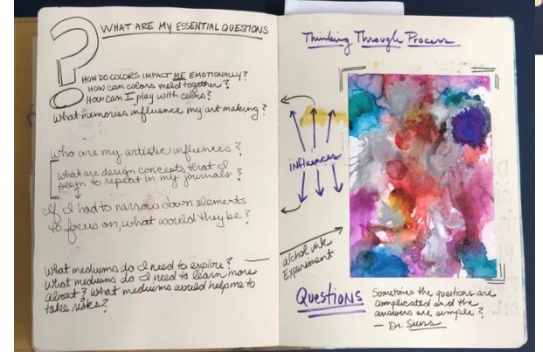 WHAT ARE MY ESSENTIAL QUESTIONS
HOW DO COLORS IMPACT ME EMOTIONALLY?
HOW CAN COLORS meld together?
How can I play with colors?
What memories influence my art making?
Who are my artistic influences?
What are design concepts that I
seem to repeat in my journals?
If I had to narrow down elements
to focus on, what would they be?
What mediums do I need to explore?
What mediums do I need to learn more
about? What mediums would help me to
take risks?
Thinking Through Process
influences
alcohol ink
Experiment
Questions
Sometimes the questions are
complicated and the
answers are simple?
— Dr. Seuss